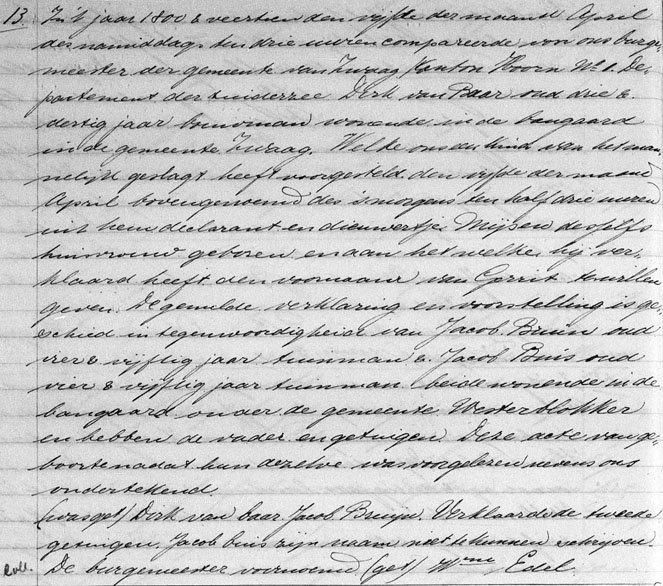 13. In 't jaar 1800 & veertien den vijfde der maand April
des namiddags ten drie uuren compareerde voor ons burge
meester der gemeente van Zwaag Kanton Hoorn No 1. De-
partement der Zuiderzee Dirk van Baar oud drie &
dertig jaar bouwman wonende in de bangaard
in de gemeente Zwaag. Welke ons een kind van het man-
nelijk geslagt heeft voorgesteld den vijfde der maand
April bovengenoemd des 's morgens ten half drie uuren
uit hem declarant en dieuwertje Mijsen deselfs
huisvrouw geboren en aan het welke hij ver-
klaard heeft den voornaam van Gerrit te willen
geven. De gemelde verklaring en voorstelling is ge-
schied in tegenwoordigheid van Jacob Bruin oud
vier & vijftig jaar tuinman & Jacob Buis oud
vier & vijftig jaar tuinman beide wonende in de
bangaard onder de gemeente Westerblokker
en hebben de vader en getuigen Deze acte van ge-
boorte nadat hun dezelve was voorgelezen nevens ons
ondertekend.
(was get) Dirk van baar Jacob Bruijn. Verklaarde de tweede
getuigen Jacob buis zijn naam niet te kunnen schrijven.
Coll. De burgemeester voornoemd (get) Wm Edel